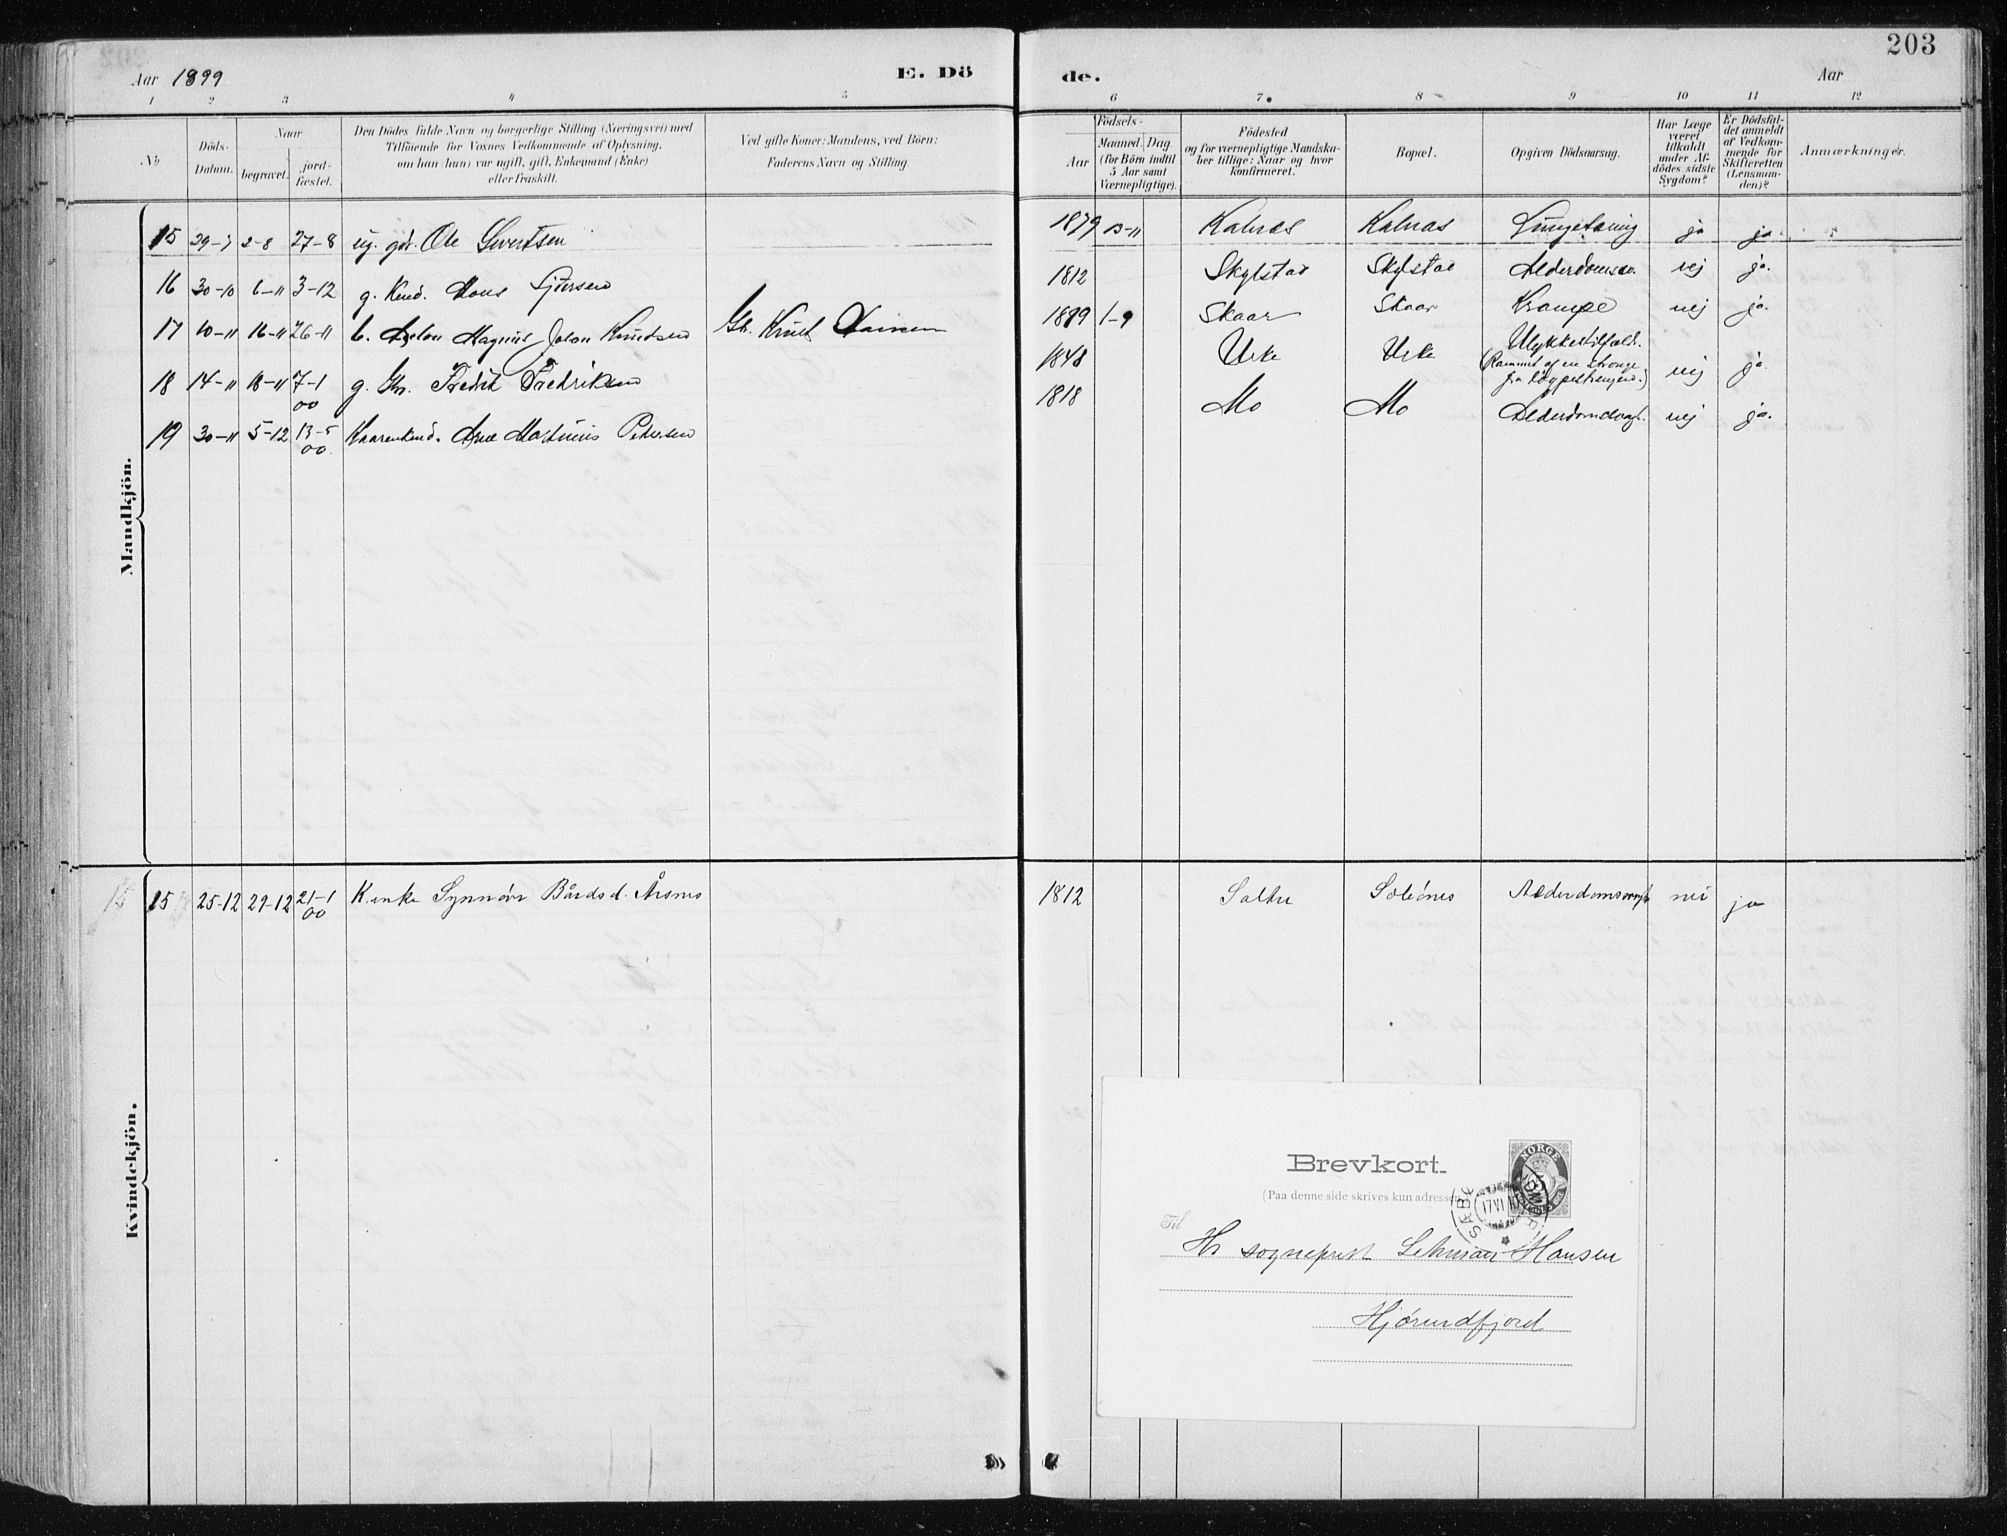 203
Aar 1899 E. Dö de. Aar
1 2 3 4 5 6 7 8 9 10 11 12
No Döds-Datum. Naar begravet. jord-fæstet. Den Dödes fulde Navn og borgerlige Stilling (Næringsvei) med Tilföiende for Voxnes Vedkommende af Oplysning, om han (hun) var ugift, gift, Enkemand (Enke) eller fraskilt. Ved gifte Koner: Mandens, ved Börn: Faderens Navn og Stilling. Födsels- Aar Maaned. Dag. (for Börn indtil 5 Aar samt Værnepligtige). Födested og for værnepligtige Mandskaber tillige: Naar og hvor konfirmeret. Bopæl. Opgiven Dödsaarsag. Har Læge været tilkaldt under Afdödes sidste Sygdom? Er Dödsfaldet anmeldt af Vedkommende for Skifteretten (Lensmanden)? Anmærkninger.
Mandkjön.
15 29-7 2-8 27-8 ug. gdr. Ole Sivertsen 1879 13-11 Kalnæs Kalnæs ja ja
16 30-10 6-11 3-12 g. Kend. Mons 1812 Skylstad Skylstad nej ja.
17 10-11 16-11 26-11 b. Anton Magnus Johan Knudsen Gbr. Knut 1899 1-9 Skaar Skaar Krampe nej ja.
18 14-11 18-11 7-1 00 g. Gbr. Fredrik Fredriksen 1848 Urke Urke Ulykkestilfæld. (Rammet af en Strænge fra Løypestrengen.) nej ja.
19 30-11 5-12 13-5 00. Kaarenkend. Martinus Petersen 1818 Mo Mo Alderdomsvagh. nej ja.
Kvindekjön.
15 15 25-12 29-12 21-1 00 K.enke Synnøve Bårdsd. Årsnes 1812 Sæbönes Alderdomsvagh nei ja
Brevkort.
(Paa denne side skrives kun adressen
NORGE
5
17 VI
Til
Hr sogneprest Hansen
Hjørundfjord